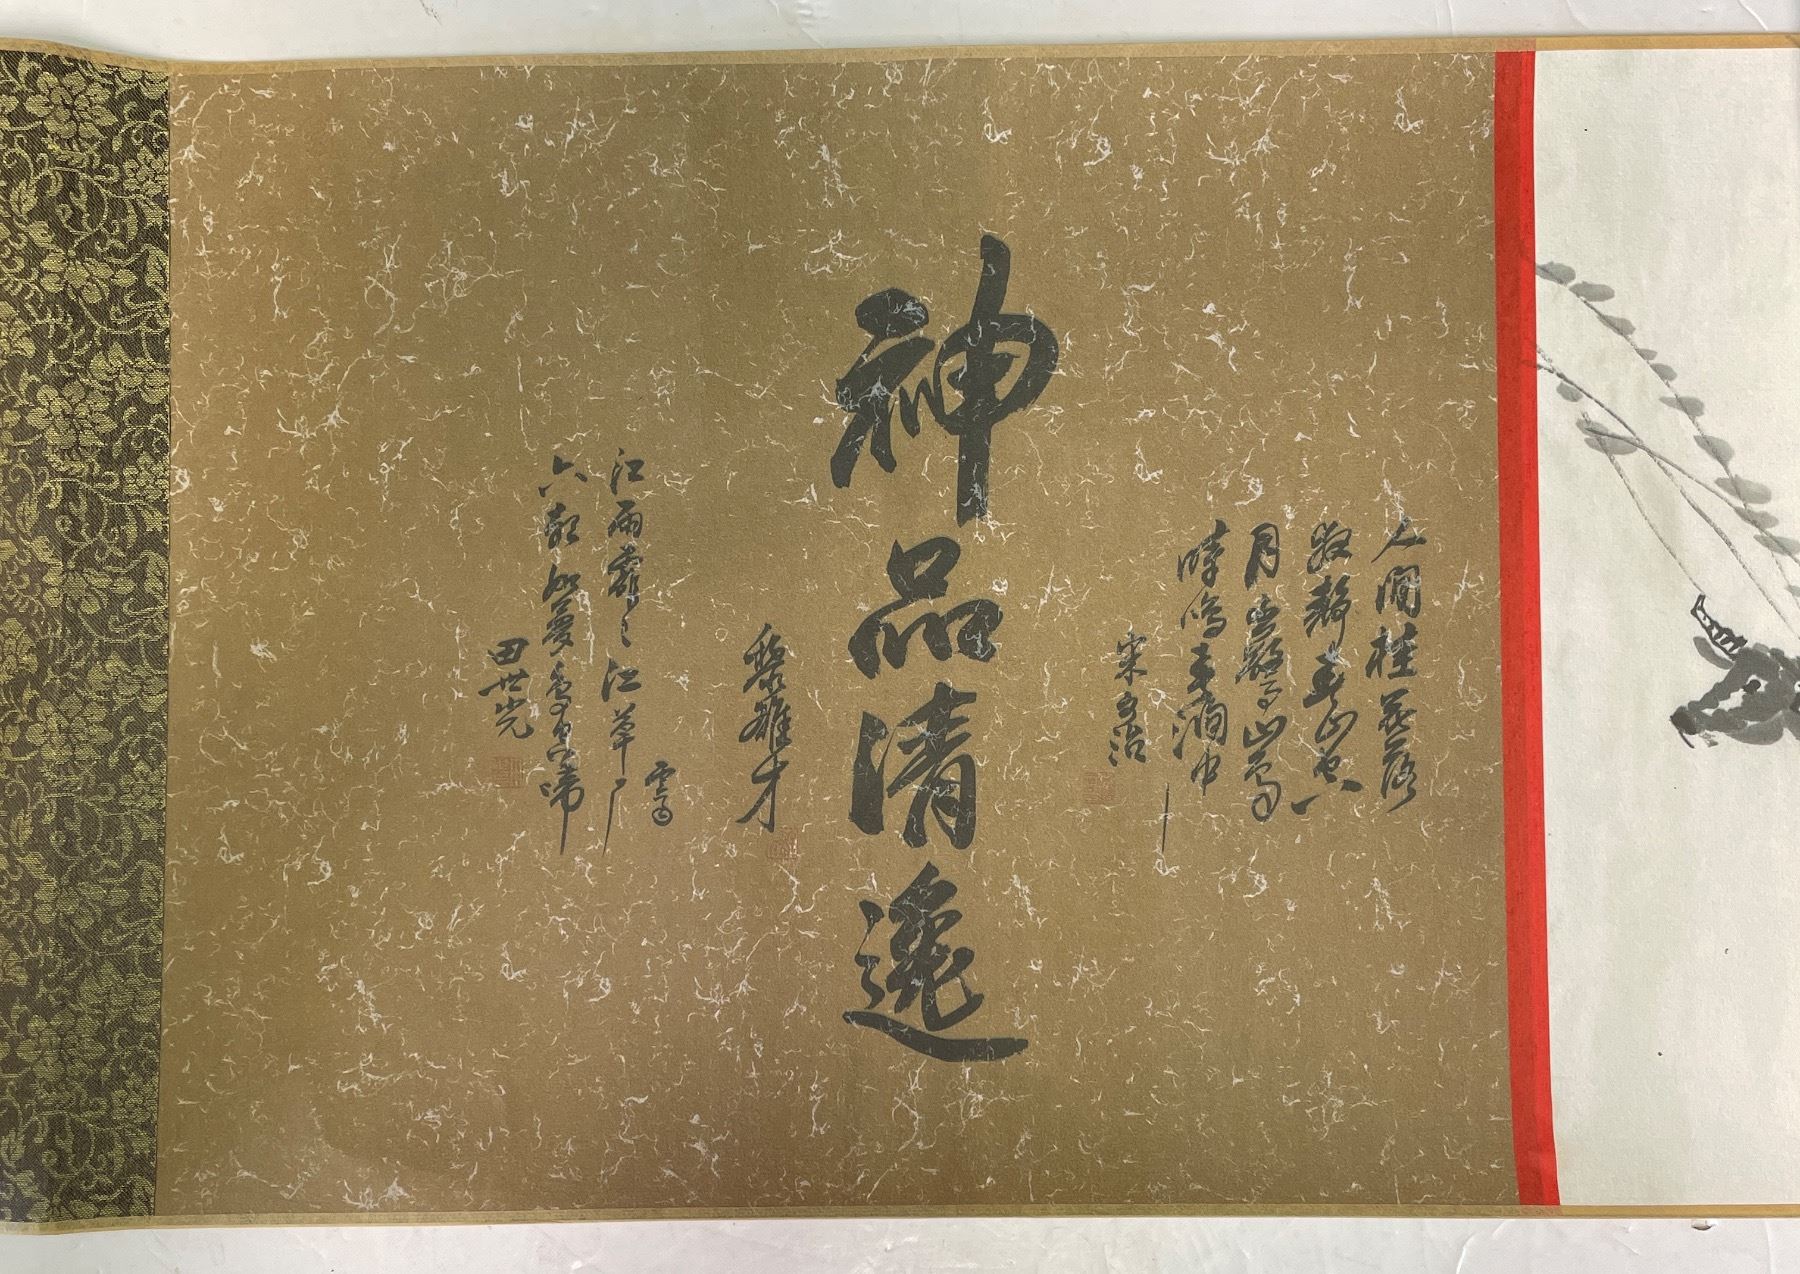 人閒桂花落
夜靜春山空
月出驚山鳥
時鳴春澗中
宋文治
神品清逸
黎雄才
江雨霏〻江草
六朝如夢鳥空啼
田世光